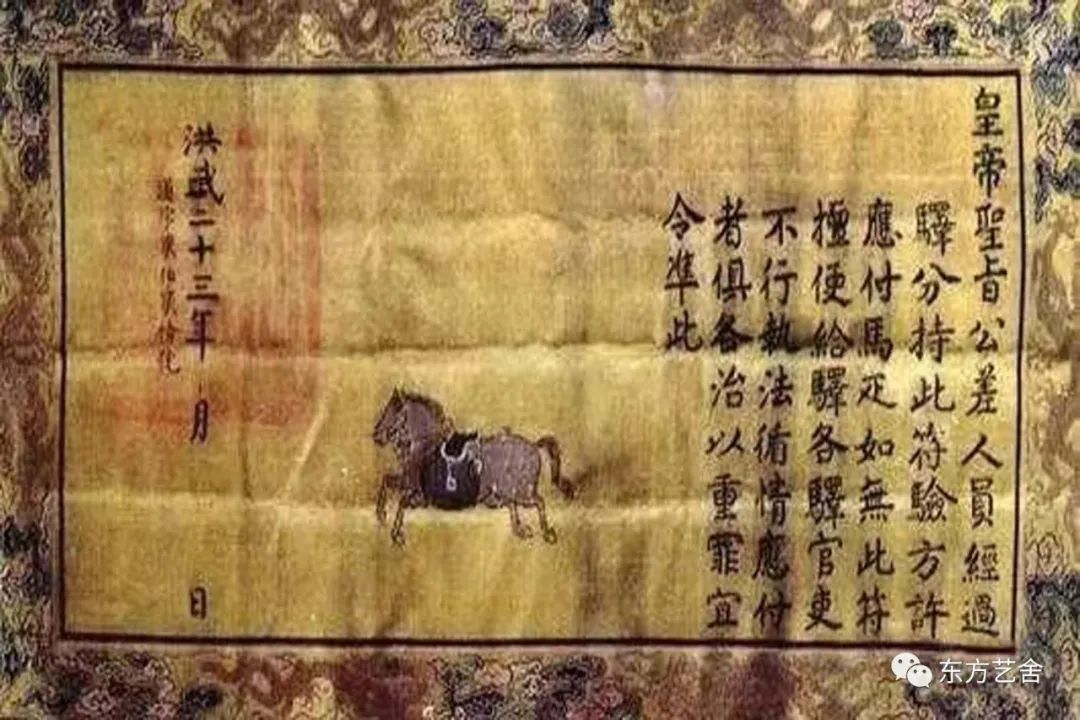 皇帝聖旨公差人員經過
驛分持此符驗方許
應付馬疋如無此符
擅便給驛各驛官吏
不行執法循情應付
者俱各治以重罪宜
令準此
洪武二十三年 月 日
东方艺舍